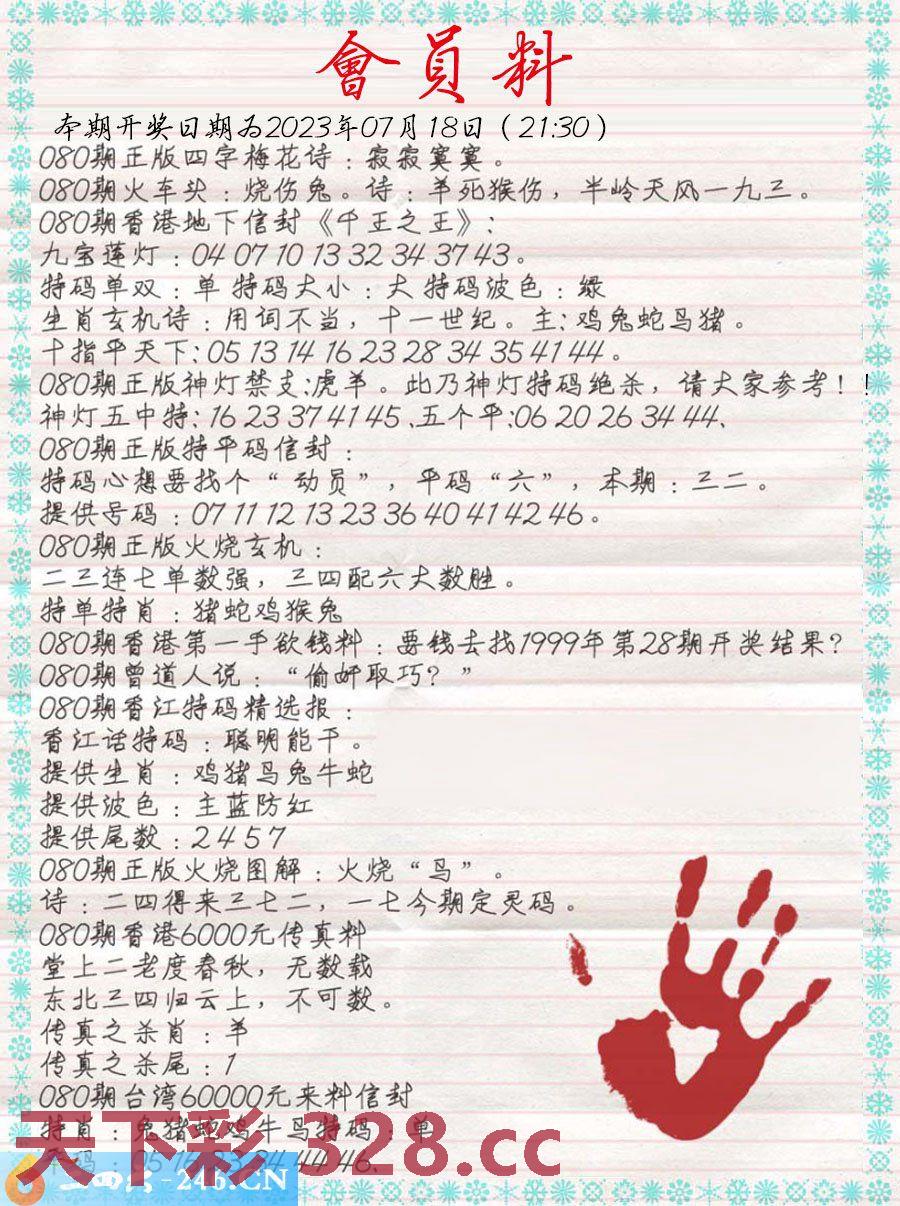 會員料
本期开奖日期为2023年07月18日（21:30）
080期正版四字梅花诗：寂寂寞寞。
080期火车头：烧伤兔。诗：羊死猴伤，半岭天风一九三。
080期香港地下信封《千王之王》：
九宝莲灯：04 07 10 13 32 34 37 43。
特码单双：单 特码大小：大 特码波色：绿
生肖玄机诗：用词不当，十一世纪。主:鸡兔蛇马猪。
十指平天下:05 13 14 16 23 28 34 35 41 44。
080期正版神灯禁支:虎羊。此乃神灯特码绝杀，请大家参考！！
神灯五中特:16 23 37 41 45、五个平:06 20 26 34 44、
080期正版特平码信封：
特码心想要找个“动员”，平码“六”，本期：三二。
提供号码：07 11 12 13 23 36 40 41 42 46。
080期正版火烧玄机：
二三连七单数强，三四配六大数胜。
特单特肖：猪蛇鸡猴兔
080期香港第一手欲钱料：要钱去找1999年第28期开奖结果？
080期曾道人说：“偷奸取巧？”
080期香江特码精选报：
香江话特码：聪明能干。
提供生肖：鸡猪马兔牛蛇
提供波色：主蓝防红
提供尾数：2 4 5 7
080期正版火烧图解：火烧“鸟”。
诗：二四得来三七二，一七今期定灵码。
080期香港6000元传真料
堂上二老度春秋，无数载
东北三四归云上，不可数。
传真之杀肖：羊
传真之杀尾：1
080期台湾60000元来料信封
特肖：兔猪蛇鸡牛马特码：单
天下彩 328.cc
平码：05 16 23 34 44 46、
-246.CN